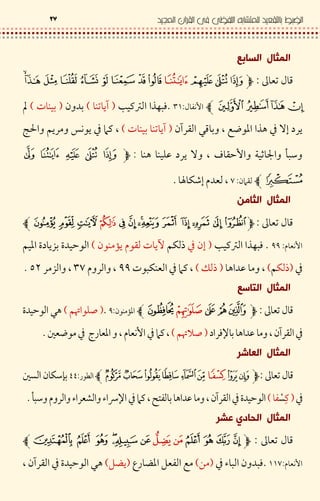 الضبط بالتقعيد للمتشابه اللفظي في القرآن المجيد ٢٧
المثال السابع
قال تعالى : ﴿ وَإِذَا تُتْلَىٰ عَلَيْهِمْ ءَايَـٰتُنَا قَالُوا۟ قَدْ سَمِعْنَا لَوْ نَشَآءُ لَقُلْنَا مِثْلَ هَـٰذَآ
إِنْ هَـٰذَآ إِلَّآ أَسَـٰطِيرُ ٱلْأَوَّلِينَ ﴾ الأنفال:٣١ .فبهذا التركيب ( آياتنا ) بدون ( بينات ) لم
يرد إلا في هذا الموضع ، وباقي القرآن ( آياتنا بينات ) ، كما في يونس ومريم والحج
وسبأ والجاثية والأحقاف ، ولا يرد علينا هنا : ﴿ وَإِذَا تُتْلَىٰ عَلَيْهِ ءَايَـٰتُنَا وَلَّىٰ
مُسْتَكْبِرًا ﴾ لقمان: ٧ ، لعدم إشكالها .
المثال الثامن
قال تعالى : ﴿ ٱنظُرُوٓا۟ إِلَىٰ ثَمَرِهِۦٓ إِذَآ أَثْمَرَ وَيَنْعِهِۦٓ إِنَّ فِى ذَٰلِكُمْ لَـَٔايَـٰتٍ لِّقَوْمٍ يُؤْمِنُونَ ﴾
الأنعام: ٩٩ . فبهذا التركيب ( إن في ذلكم لآيات لقوم يؤمنون ) الوحيدة بزيادة الميم
في (ذلكم) ، وما عداها ( ذلك ) ، كما في العنكبوت ٩٩ ، والروم ٣٧ ، والزمر ٥٢ .
المثال التاسع
قال تعالى : ﴿ وَٱلَّذِينَ هُمْ عَلَىٰ صَلَوَٰتِهِمْ يُحَافِظُونَ ﴾ المؤمنون:٩ .( صلواتهم ) هي الوحيدة
في القرآن ، وما عداها بالإفراد ( صلاتهم ) ، كما في الأنعام ، و المعارج في موضعين .
المثال العاشر
قال تعالى : ﴿ وَإِن يَرَوْا۟ كِسْفًا مِّنَ ٱلسَّمَآءِ سَاقِطًا يَقُولُوا۟ سَحَابٌ مَّرْكُومٌ ﴾ الطور:٤٤ بإسكان السين
في ( كِسْفا ) الوحيدة في القرآن ، وما عداها بالفتح ، كما في الإسراء والشعراء والروم وسبأ .
المثال الحادي عشر
قال تعالى : ﴿ إِنَّ رَبَّكَ هُوَ أَعْلَمُ مَن يَضِلُّ عَن سَبِيلِهِۦ ۖ وَهُوَ أَعْلَمُ بِٱلْمُهْتَدِينَ ﴾
الأنعام: ١١٧ .فبدون الباء في (من) مع الفعل المضارع (يضل) هي الوحيدة في القرآن ،